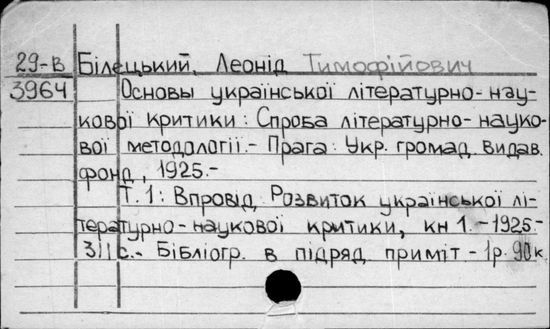 29-В Білецький, Леонід Тимофійович
3964 Основы української літературно-нау-
кової критики: Спроба літературно-науко-
вої методології.- Прага: Укр. громад. видав.
фонд, 1925.-
Т. 1: Впровід. Розвиток української лі-
тературно-наукової критики, кн 1.-1925.-
311 с.- Бібліогр. в підряд. приміт.- 1р. 90к